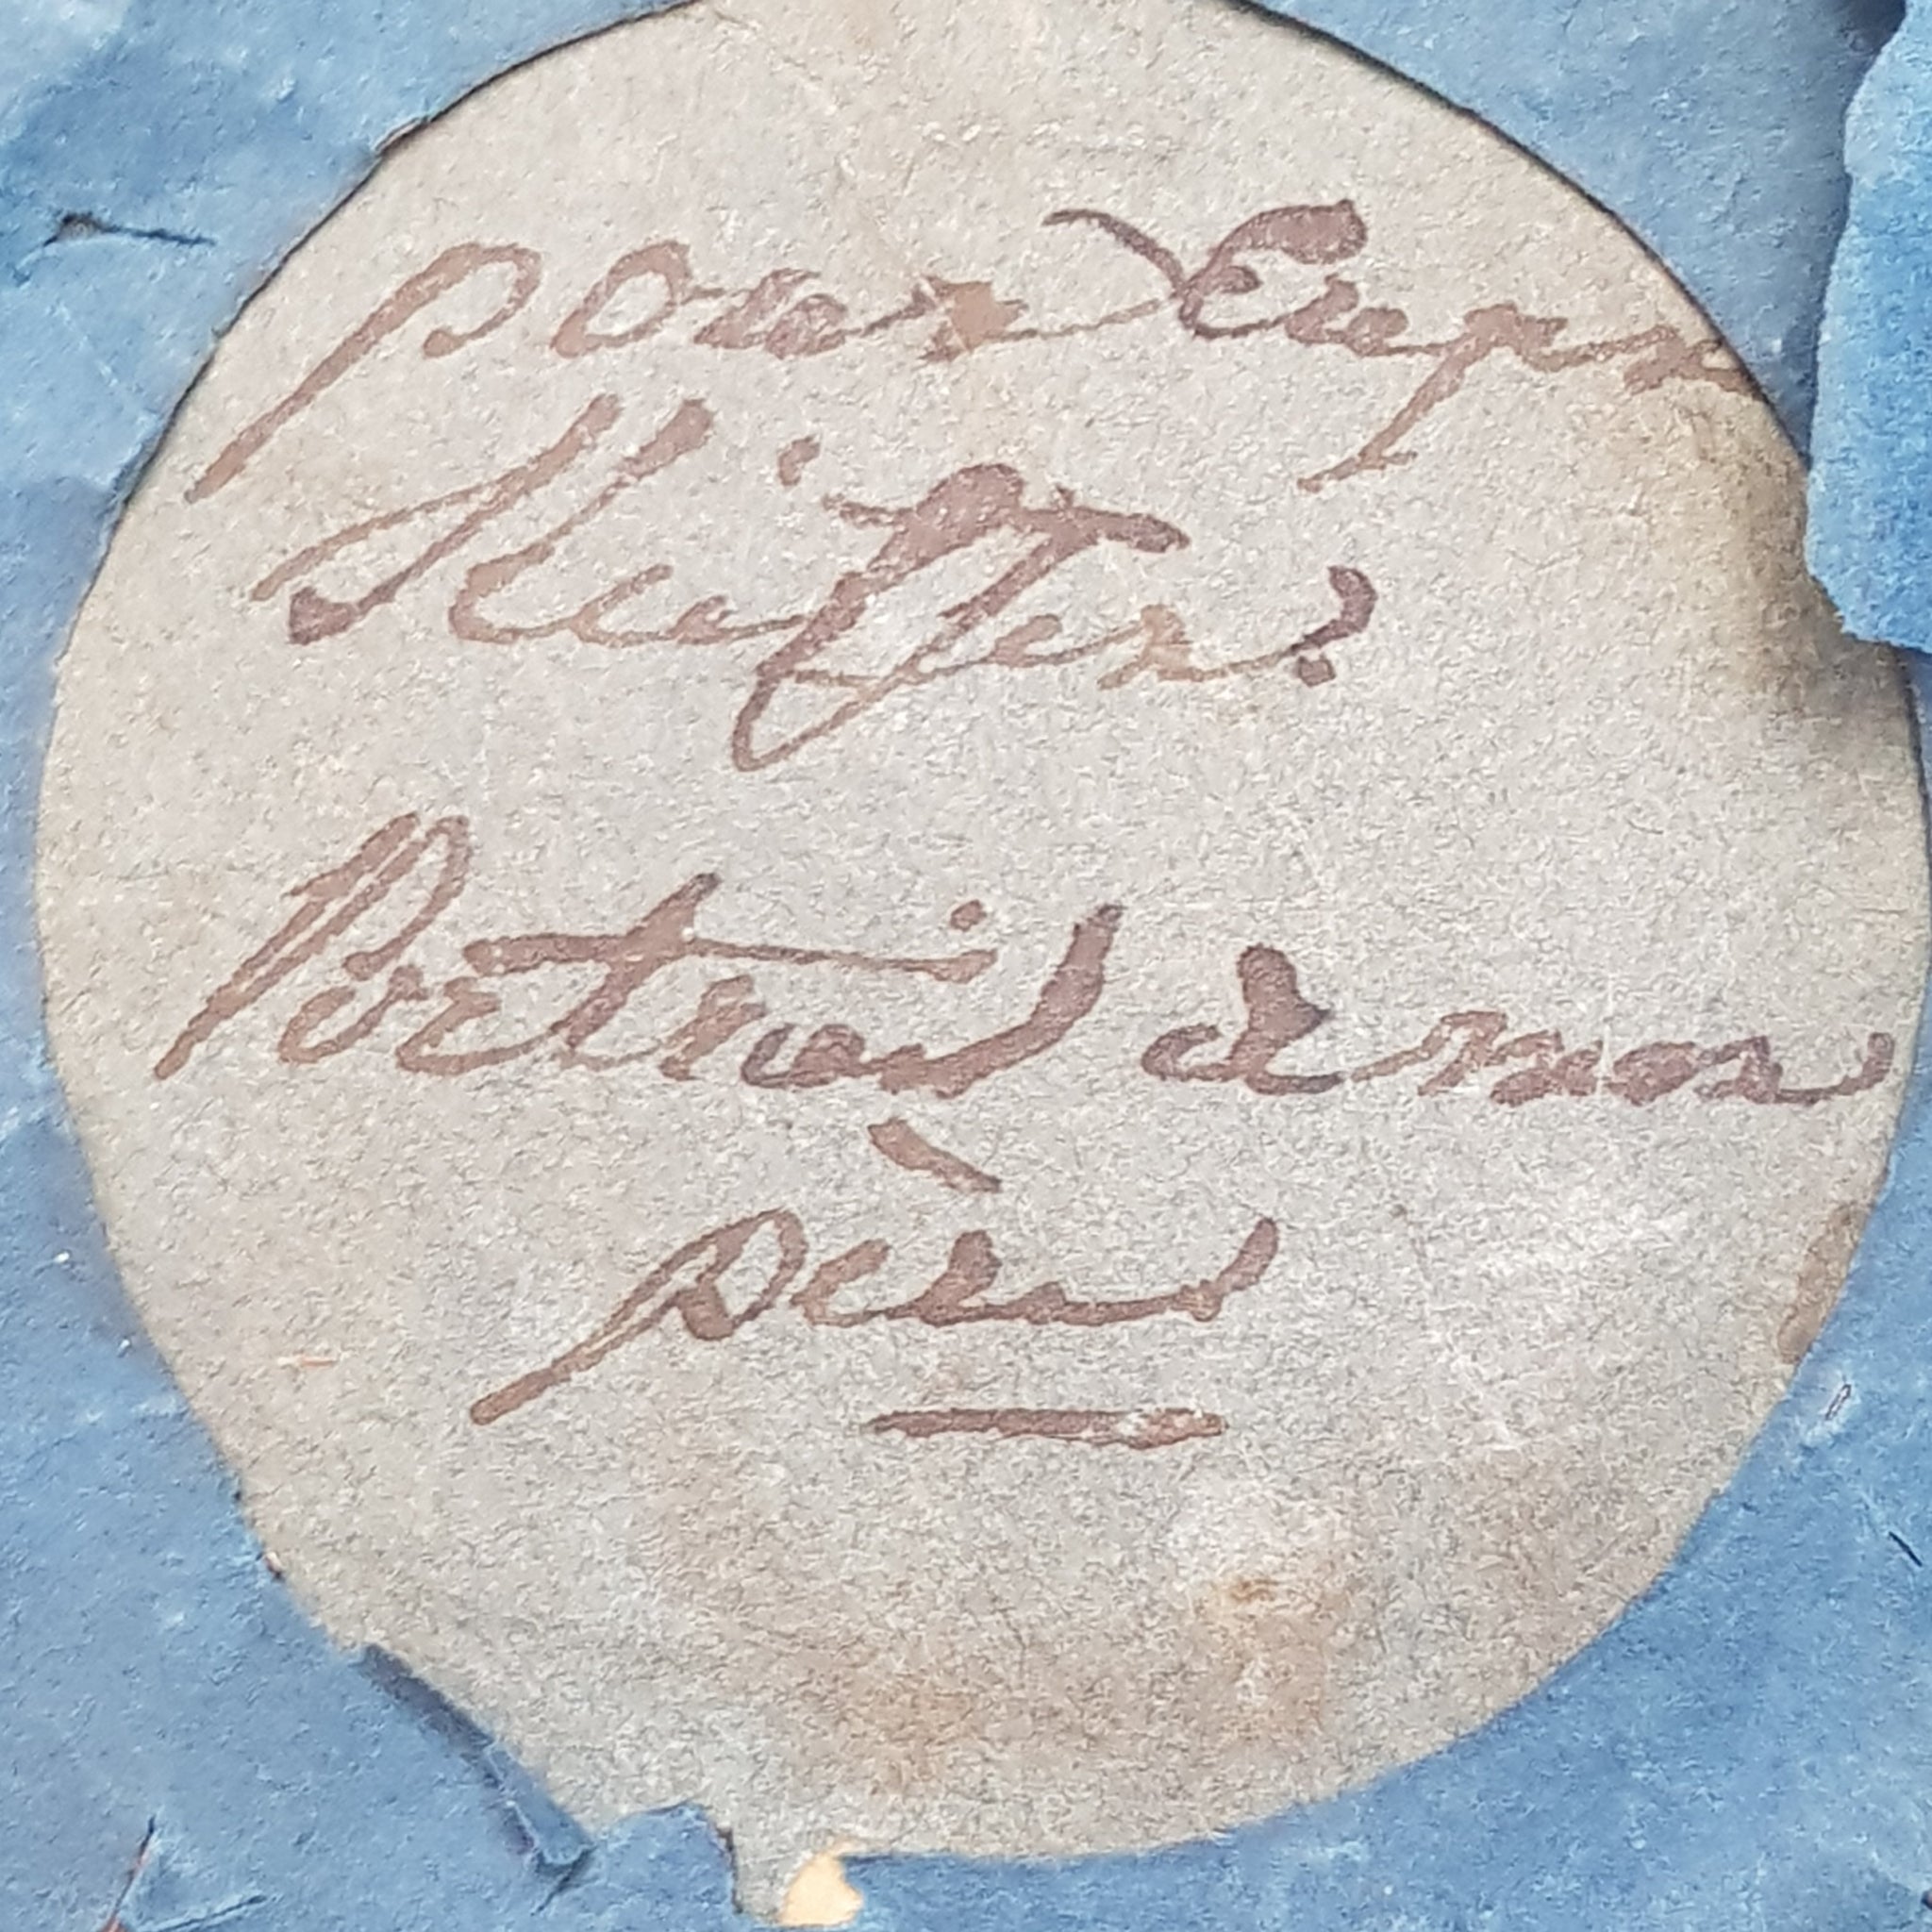 pour Eugn
Kieffer.
Portrait de mon
père